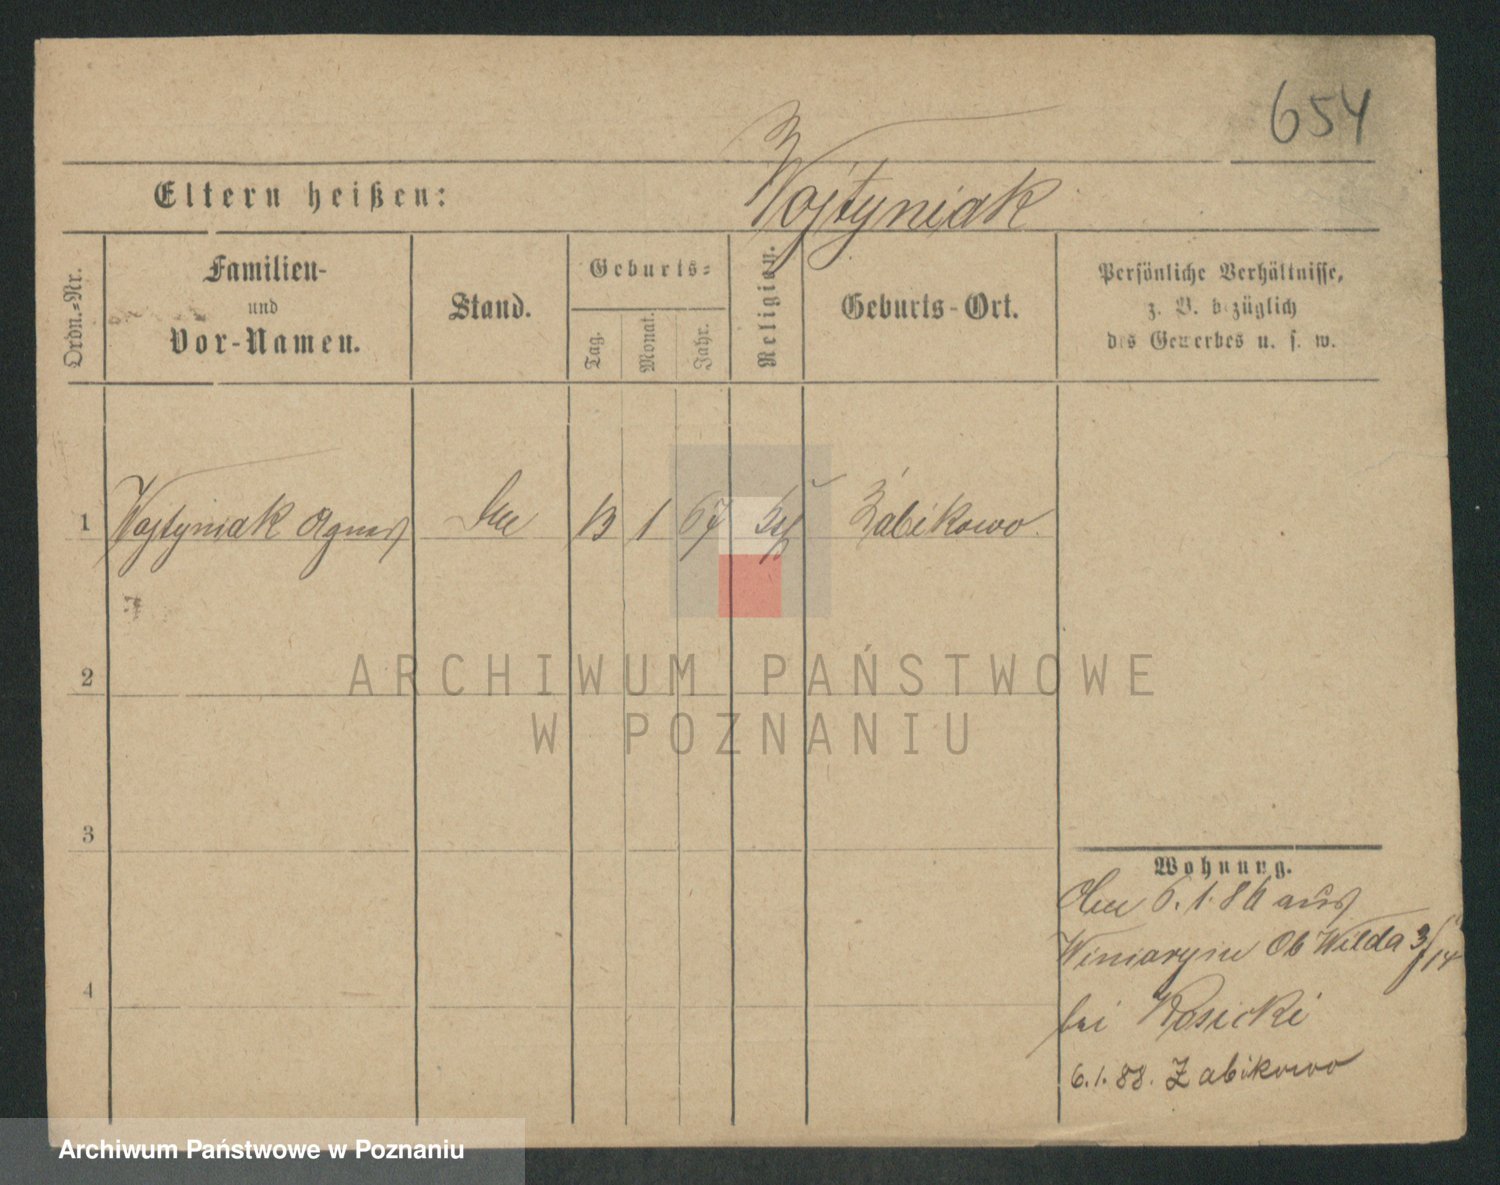 654
Wojtyniak
Eltern heißen:
Ordn.-Nr.
Familien-
und
Vor-Namen.
Stand.
Geburts-
Tag.
Monat.
Jahr.
Religion.
Geburts-Ort.
Persönliche Verhältnisse,
z. B. bezüglich
des Gewerbes u. s. w.
1 Wojtyniak Agnes 13 1 67 Żabikowo
2
3
4
Wohnung.
6.1.86 aus
Ob Wilda 3/14
bei Kosicki
6.1.88. Zabikowo
ARCHIWUM PAŃSTWOWE
W POZNANIU
Archiwum Państwowe w Poznaniu